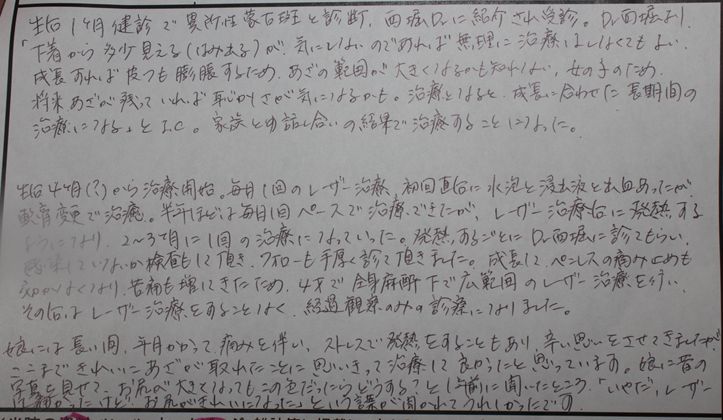 生后1ヶ月健診で異所性蒙古斑と診断、西堀Dr.に紹介され受診。Dr西堀より
「下着から多少見える(はみ出る)が、気にしないのであれば無理に治療はしなくてもよい。
成長すれば皮フも膨脹するため、あざの範囲が大きくなるかも知れない、女の子のため
将来あざが残っていれば恥しかさが気になるかも。治療となると、成長に合わせた長期間の
治療になる」とI.C。家族との話し合いの結果で治療することになった。
生后4ヶ月(?)から治療開始。毎月1回のレーザー治療、初回直后に水泡と浸出液と出血あったが
軟膏変更で治癒。半年ほどは毎月1回ペースで治療できたが、レーザー治療后に発熱する
ようになり、2～3ヶ月に1回の治療になっていった。発熱するごとにDr西堀に診てもらい、
感染していないか検査もして頂き、フォローも手厚く診て頂きました。成長して、ペンレスの痛み止めも
効かなくなり、苦痛も増してきたため、4才で全身麻酔下で広範囲のレーザー治療を行い、
その后はレーザー治療をすることなく、経過観察のみの診療になりました。
娘には長い間、年月かかって痛みを伴い、ストレスで発熱をすることもあり、辛い思いをさせてきましたが
ここまできれいにあざが取れたことに思いきって治療して良かったと思っています。娘に昔の
写真を見せて、お尻が大きくなってもこの色だったらどうする?と 前に聞いたところ、「いやだ、レーザー
けど、お尻がきれいになった」という言葉が聞かれてうれしかったです。